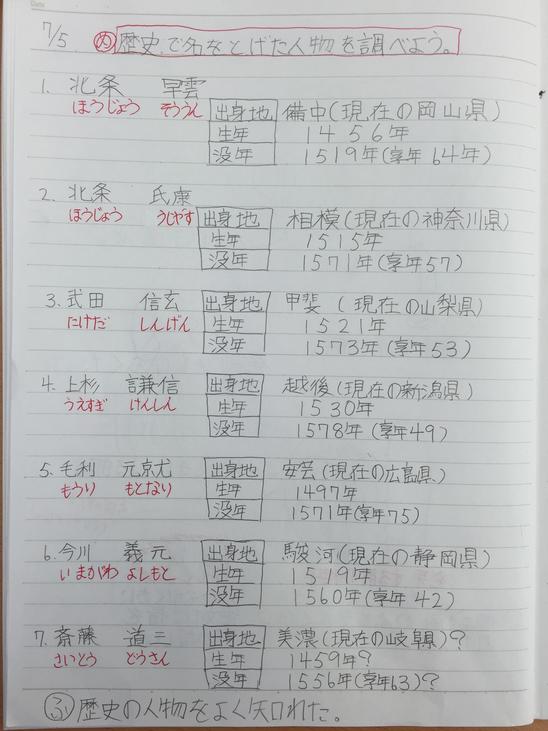 7/5 め 歴史で名をとげた人物を調べよう。
1. 北条 早雲
ほうじょう そううん
出身地 備中(現在の岡山県)
生年 1456年
没年 1519年(享年64年)
2. 北条 氏康
ほうじょう うじやす
出身地 相模(現在の神奈川県)
生年 1515年
没年 1571年(享年57)
3. 武田 信玄
たけだ しんげん
出身地 甲斐(現在の山梨県)
生年 1521年
没年 1573年(享年53)
4. 上杉 謙信
うえすぎ けんしん
出身地 越後(現在の新潟県)
生年 1530年
没年 1578年(享年49)
5. 毛利 元京尤
もうり もとなり
出身地 安芸(現在の広島県)
生年 1497年
没年 1571年(享年75)
6. 今川 義元
いまがわ よしもと
出身地 駿河(現在の静岡県)
生年 1519年
没年 1560年(享年42)
7. 斎藤 道三
さいとう どうさん
出身地 美濃(現在の岐阜県)?
生年 1459年?
没年 1556年(享年63)?
ふ 歴史の人物をよく知れた。